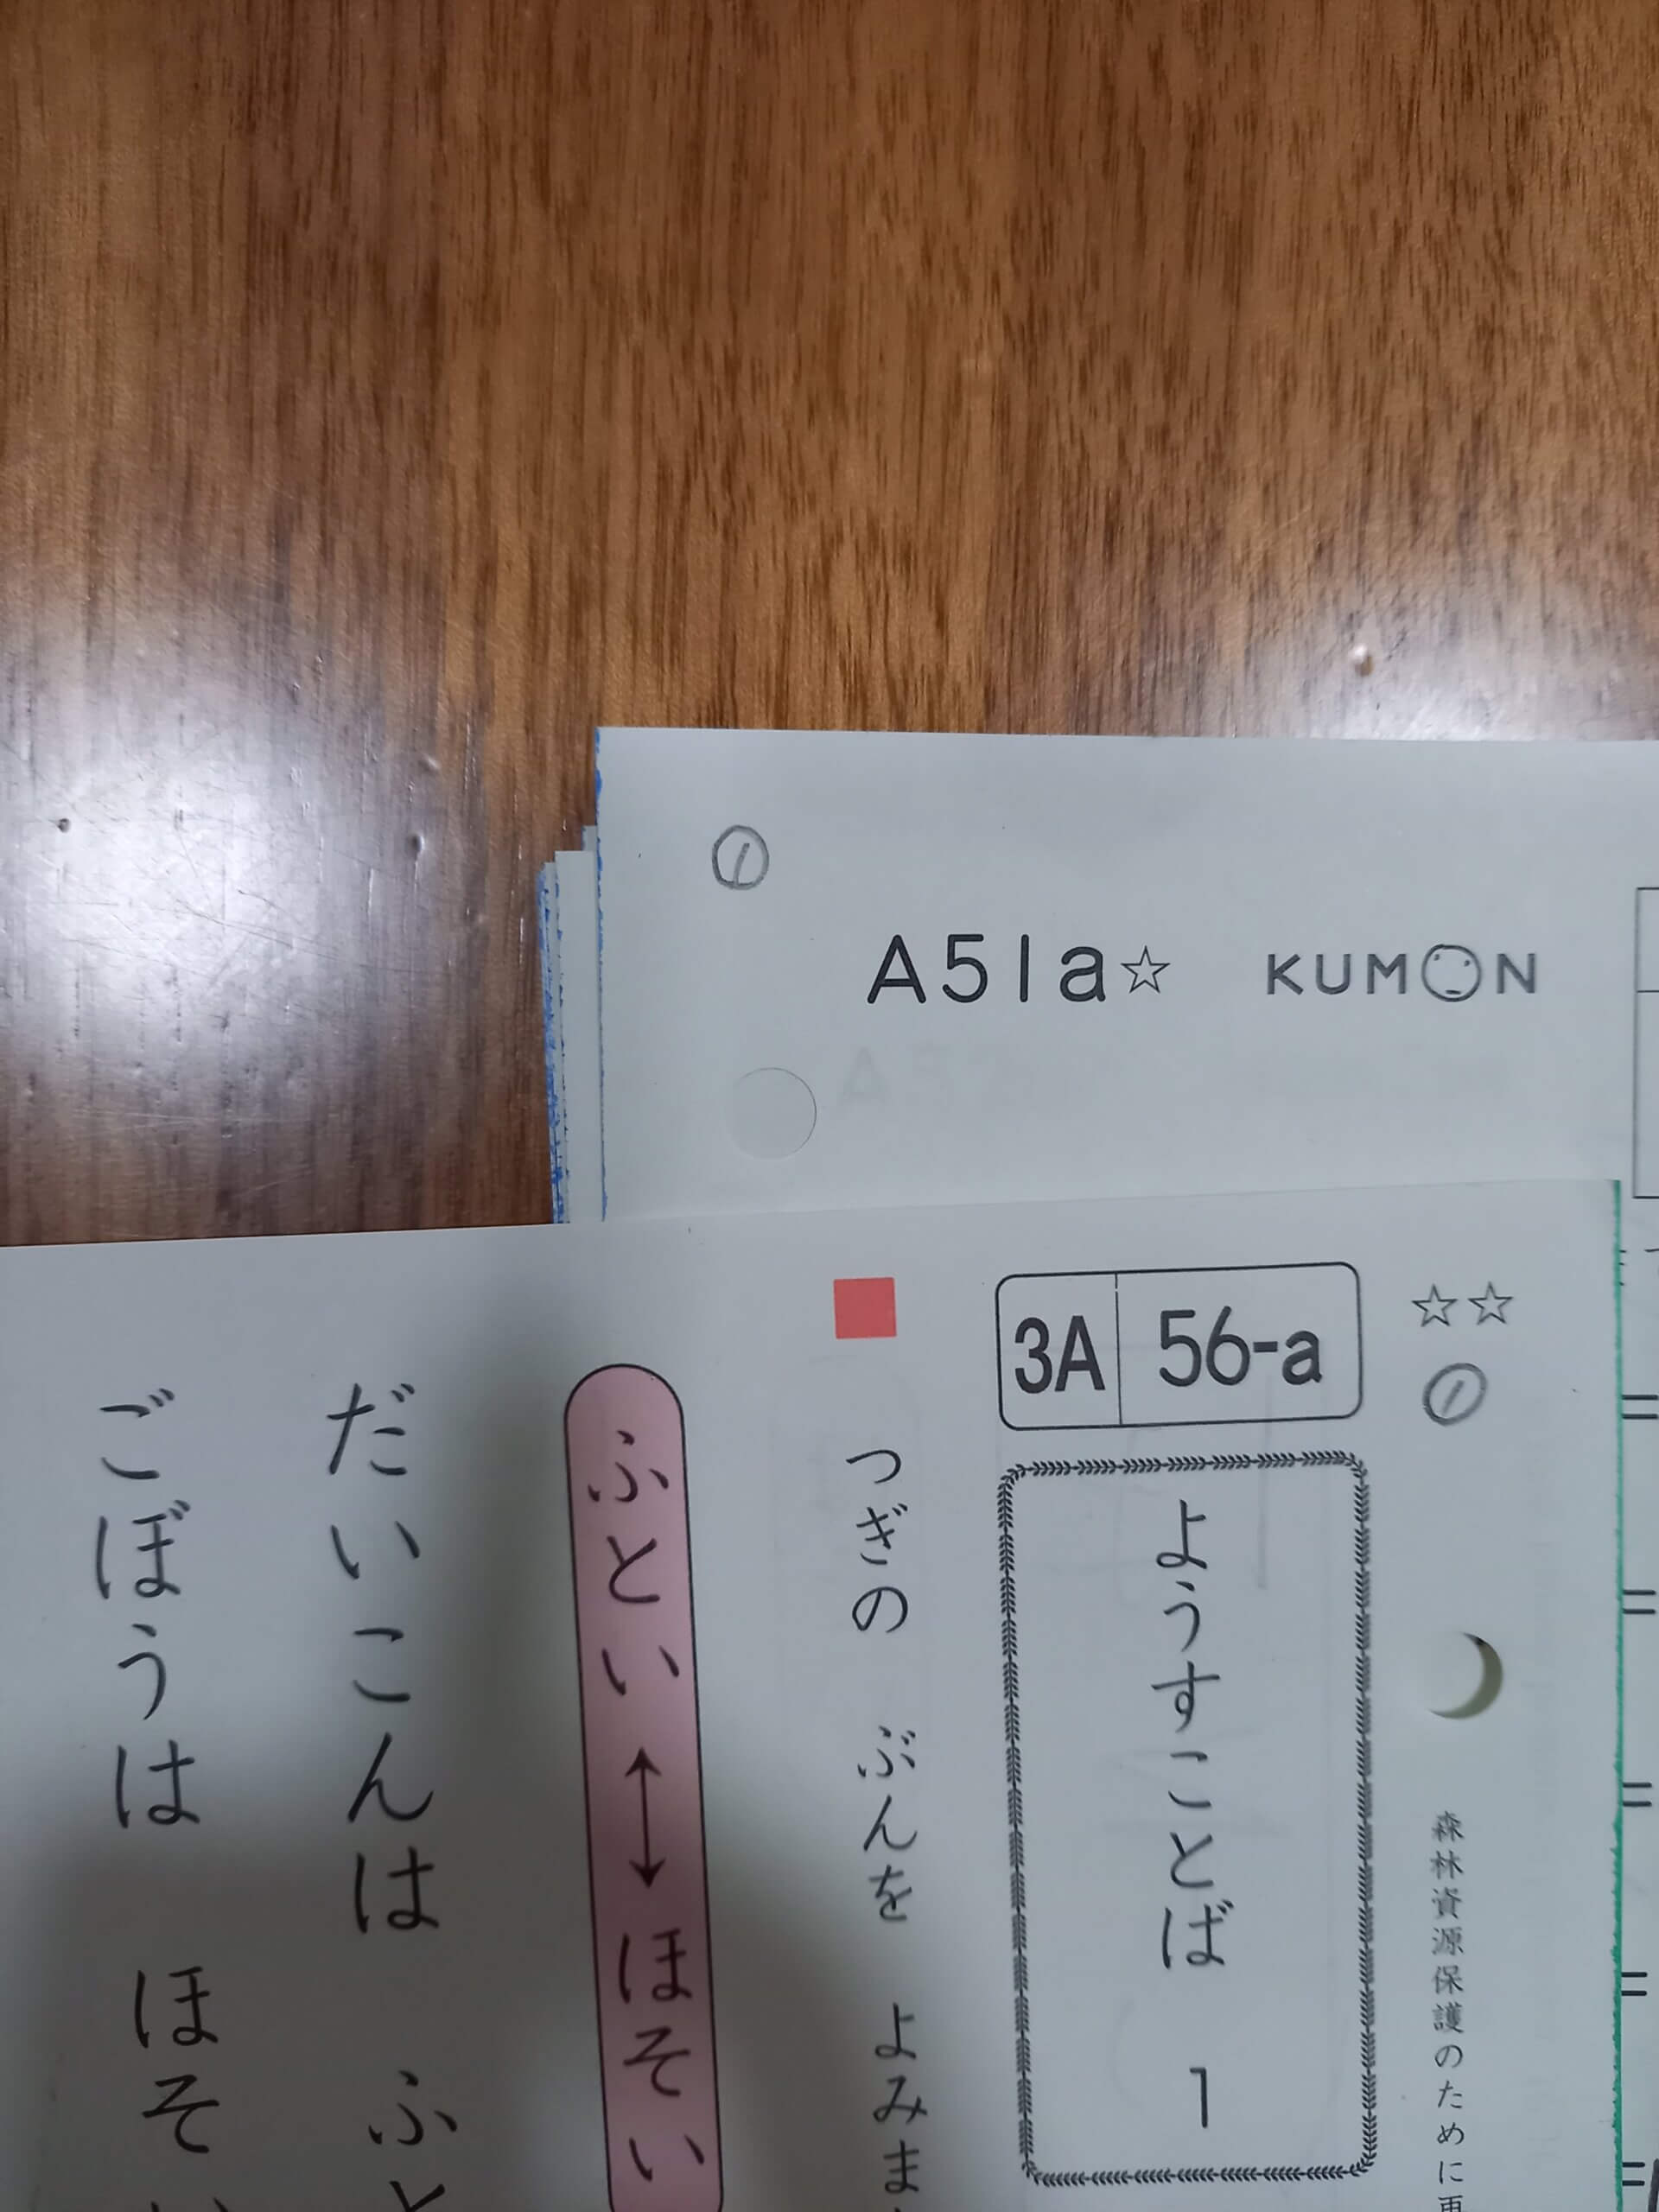 ①
A51a☆ KUMON
☆☆
①
森林資源保護のために再
3A 56-a
ようすことば 1
つぎの ぶんを よみま
ふとい ↔ ほそい
だいこんは ふと
ごぼうは ほそい